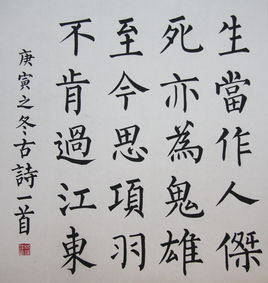 生當作人傑
死亦為鬼雄
至今思項羽
不肯過江東
庚寅之冬古詩一首